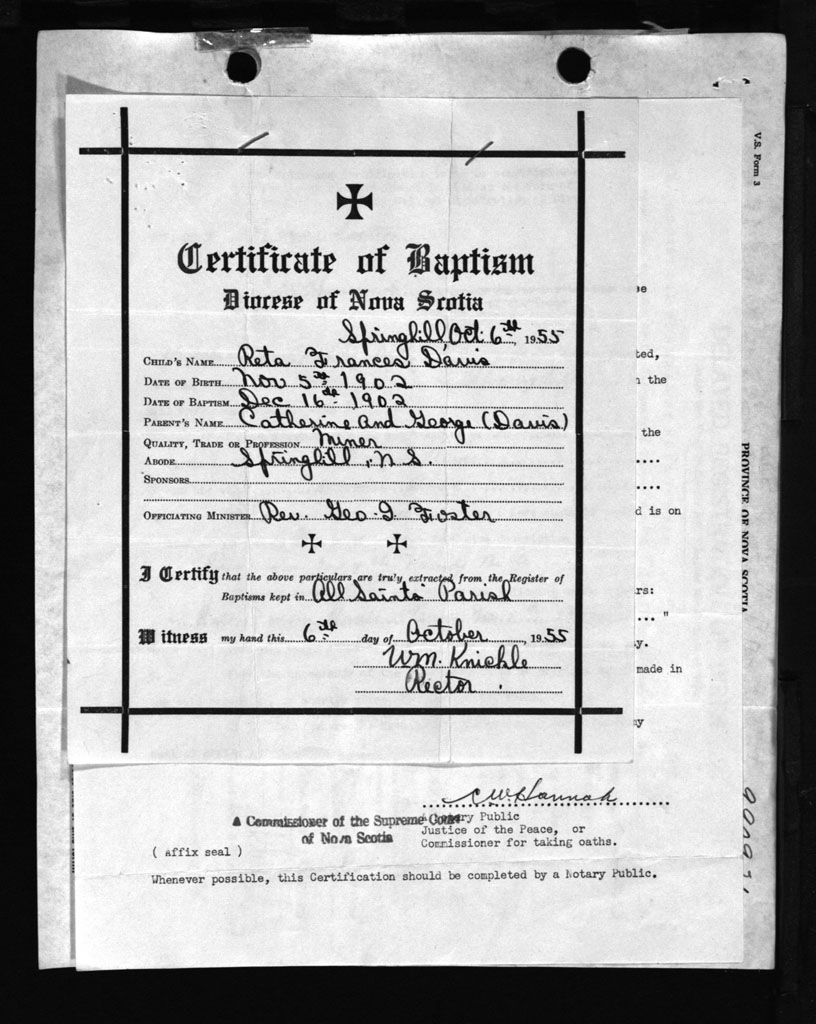 Certificate of Baptism
Diocese of Nova Scotia
Springhill, Oct. 6th, 1955
CHILD'S NAME Reta Frances Davis
DATE OF BIRTH Nov 5th 1902
DATE OF BAPTISM Dec 16th 1902
PARENT'S NAME Catherine and George (Davis)
QUALITY, TRADE OR PROFESSION Miner
ABODE Springhill, N.S.
SPONSORS
OFFICIATING MINISTER Rev. Geo. I Foster
I Certify that the above particulars are truly extracted from the Register of
Baptisms kept in All Saints' Parish
Witness my hand this 6th day of October, 1955
Wm. Knickle
Rector.
V.S. Form 3
PROVINCE OF NOVA SCOTIA
ted,
the
the
d is on
rs:
... "
y.
made in
C W Hannah
A Commissioner of the Supreme Court
of Nova Scotia
Notary Public
Justice of the Peace, or
Commissioner for taking oaths.
( Affix seal )
Whenever possible, this Certification should be completed by a Notary Public.